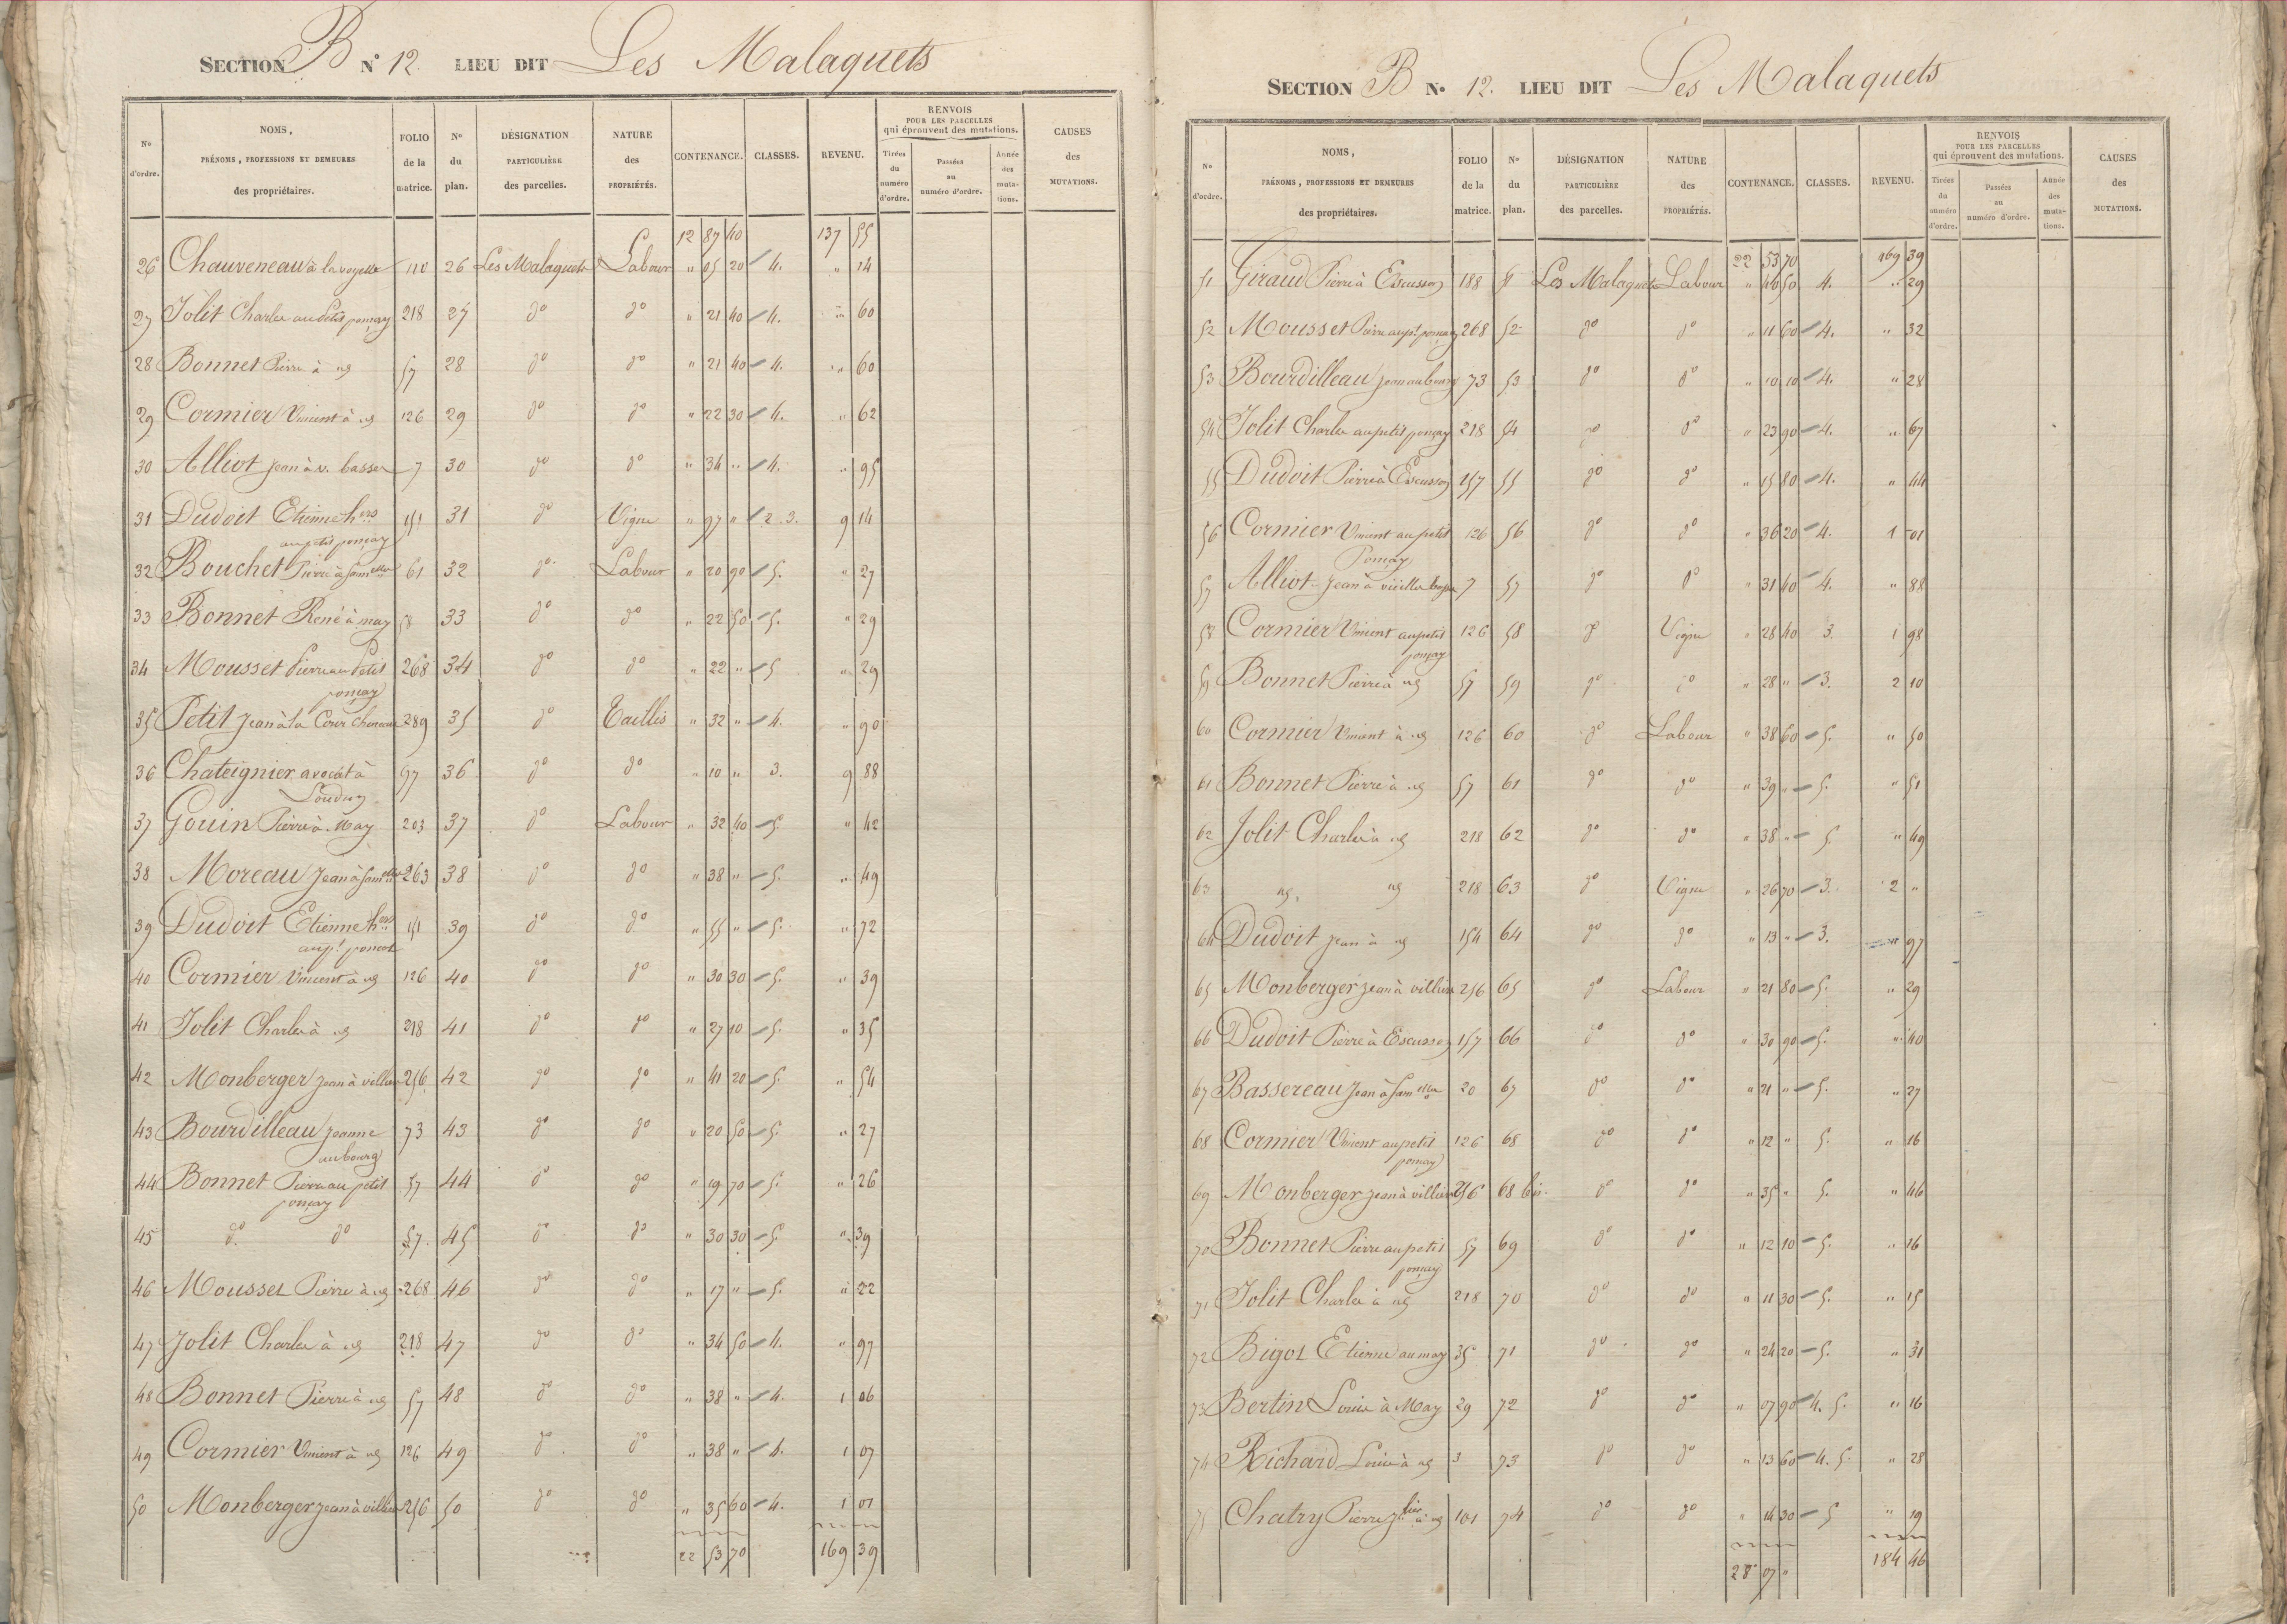 SECTION B N° 12. LIEU DIT Les Malaquets
N° d'ordre. NOMS, PRÉNOMS, PROFESSIONS ET DEMEURES des propriétaires. FOLIO de la matrice. N° du plan. DÉSIGNATION PARTICULIÈRE des parcelles. NATURE des PROPRIÉTÉS. CONTENANCE. CLASSES. REVENU. RENVOIS POUR LES PARCELLES qui éprouvent des mutations. Tirées du numéro d'ordre. Passées au numéro d'ordre. Année des mutations. CAUSES des MUTATIONS.
12 87 40 137 55
26 Chauveneau à la voyette 110 26 Les Malaquets Labour " 05 20 4. " 14
27 Jolit Charles au Petit ponçay 218 27 do do " 21 40 4. " 60
28 Bonnet Pierre à 57 28 do do " 21 40 4. " 60
29 Cormier Vincent à 126 29 do do " 22 30 4. " 62
30 Alliot Jean à v. basser 7 30 do do " 34 " 4. " 95
31 Dudoit Etienne hers 151 31 do Vigne " 97 " 2. 3. 9 14
au petit ponçay
32 Bouchet Pierre à 61 32 do Labour " 20 90 5. " 27
33 Bonnet René à may 58 33 do do " 22 50 5. " 29
34 Mousset Pierre au Petit 268 34 do do " 22 " 5 " 29
ponçay
35 Petit Jean à la Cour 289 35 do Taillis " 32 " 4. " 90
36 Chateignier avocat à 97 36 do do " 10 " 3. 9 88
Loudun
37 Gouin Pierre à May 203 37 do Labour " 32 40 5. " 42
38 Moreau Jean à 263 38 do do " 38 " 5. " 49
39 Dudoit Etienne hers 151 39 do do " 55 " 5. " 72
au pt.
40 Cormier Vincent à 126 40 do do " 30 30 5. " 39
41 Jolit Charles à 218 41 do do " 27 10 5. " 35
42 Monberger Jean à villiers 256 42 do do " 41 20 5. " 54
43 Bourdilleau Jeanne 73 43 do do " 20 50 5. " 27
au bourg
44 Bonnet Pierre au petit 57 44 do do " 19 70 5. " 26
ponçay
45 do do 57 45 do do " 30 30 5. " 39
46 Mousset Pierre à 268 46 do do " 17 " 5. " 22
47 Jolit Charles à 218 47 do do " 34 50 4. " 97
48 Bonnet Pierre à 57 48 do do " 38 " 4. 1 06
49 Cormier Vincent à 126 49 do do " 38 " 4. 1 07
50 Monberger Jean à villiers 256 50 do do " 35 60 4. 1 01
22 53 70 169 39
SECTION B N° 12. LIEU DIT Les Malaquets
N° d'ordre. NOMS, PRÉNOMS, PROFESSIONS ET DEMEURES des propriétaires. FOLIO de la matrice. N° du plan. DÉSIGNATION PARTICULIÈRE des parcelles. NATURE des PROPRIÉTÉS. CONTENANCE. CLASSES. REVENU. RENVOIS POUR LES PARCELLES qui éprouvent des mutations. Tirées du numéro d'ordre. Passées au numéro d'ordre. Année des mutations. CAUSES des MUTATIONS.
22 53 70 169 39
51 Giraud Pierre à Escusson 188 51 Les Malaquets Labour " 10 50 4. " 29
52 Mousset Pierre au pt ponçay 268 52 do do " 11 60 4. " 32
53 Bourdilleau Jean au bourg 73 53 do do " 10 10 4. " 28
54 Jolit Charles au petit ponçay 218 54 do do " 23 90 4. " 67
55 Dudoit Pierre à Escusson 157 55 do do " 15 80 4. " 44
56 Cormier Vincent au petit 126 56 do do " 36 20 4. 1 01
Ponçay
57 Alliot Jean à vieille 7 57 do do " 31 40 4. " 88
58 Cormier Vincent au petit 126 58 do Vigne " 28 40 3. 1 98
ponçay
59 Bonnet Pierre à 57 59 do do " 28 " 3. 2 10
60 Cormier Vincent à 126 60 do Labour " 38 60 5. " 50
61 Bonnet Pierre à 57 61 do do " 39 " 5. " 51
62 Jolit Charles à 218 62 do do " 38 " 5. " 49
63 218 63 do Vigne " 26 70 3. 2 "
64 Dudoit Jean à 154 64 do do " 13 " 3. " 97
65 Monberger Jean à villiers 256 65 do Labour " 21 80 5. " 29
66 Dudoit Pierre à Escusson 157 66 do do " 30 90 5. " 40
67 Bassereau Jean à 20 67 do do " 21 " 5. " 27
68 Cormier Vincent au petit 126 68 do do " 12 " 5. " 16
ponçay
69 Monberger Jean à villiers 256 68 bis. do do " 35 " 5. " 46
70 Bonnet Pierre au petit 57 69 do do " 12 10 5. " 16
ponçay
71 Jolit Charles à 218 70 do do " 11 30 5. " 15
72 Bigot Etienne au may 35 71 do do " 24 20 5. " 31
73 Bertin Louis à May 29 72 do do " 07 90 4. 5. " 16
74 Richard Louis à 3 73 do do " 13 60 4. 5. " 28
75 Chatry Pierre à 101 74 do do " 14 30 5 " 19
28 07 " 184 46